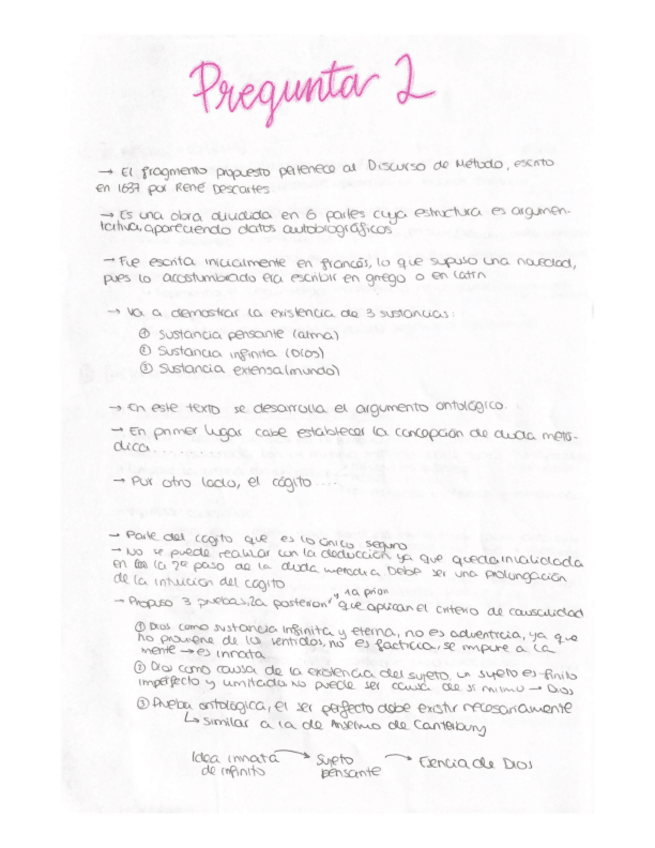 Pregunta 2
→ El fragmento propuesto pertenece al Discurso de Método, escrito
en 1637 por René Descartes.
→ Es una obra dividida en 6 partes cuya estructura es argumen-
tativa, apareciendo datos autobiográficos
→ Fue escrita inicialmente en francés, lo que supuso una novedad,
pues lo acostumbrado era escribir en griego o en latín
→ Va a demostrar la existencia de 3 sustancias:
① Sustancia pensante (alma)
② Sustancia infinita (Dios)
③ Sustancia extensa (mundo)
→ En este texto se desarrolla el argumento ontológico.
→ En primer lugar cabe establecer la concepción de duda metó-
dica..........
→ Por otro lado, el cógito ....
→ Parte del cogito que es lo único seguro
→ No se puede realizar con la deducción ya que queda invalidada
en la 2º paso de la duda metódica. Debe ser una prolongación
de la intuición del cogito
→ Propuso 3 pruebas, 2 a posteriori y 1 a priori que aplican el criterio de causalidad
① Dios como sustancia infinita y eterna, no es adventicia, ya que
no proviene de los sentidos, no es facticia, se impone a la
mente → es innata
② Dios como causa de la existencia del sujeto, un sujeto es finito
imperfecto y limitado no puede ser causa de sí mismo → Dios
③ Prueba ontológica, el ser perfecto debe existir necesariamente
↳ similar a la de Anselmo de Canterbury
Idea innata → Sujeto → Esencia de Dios
de infinito pensante